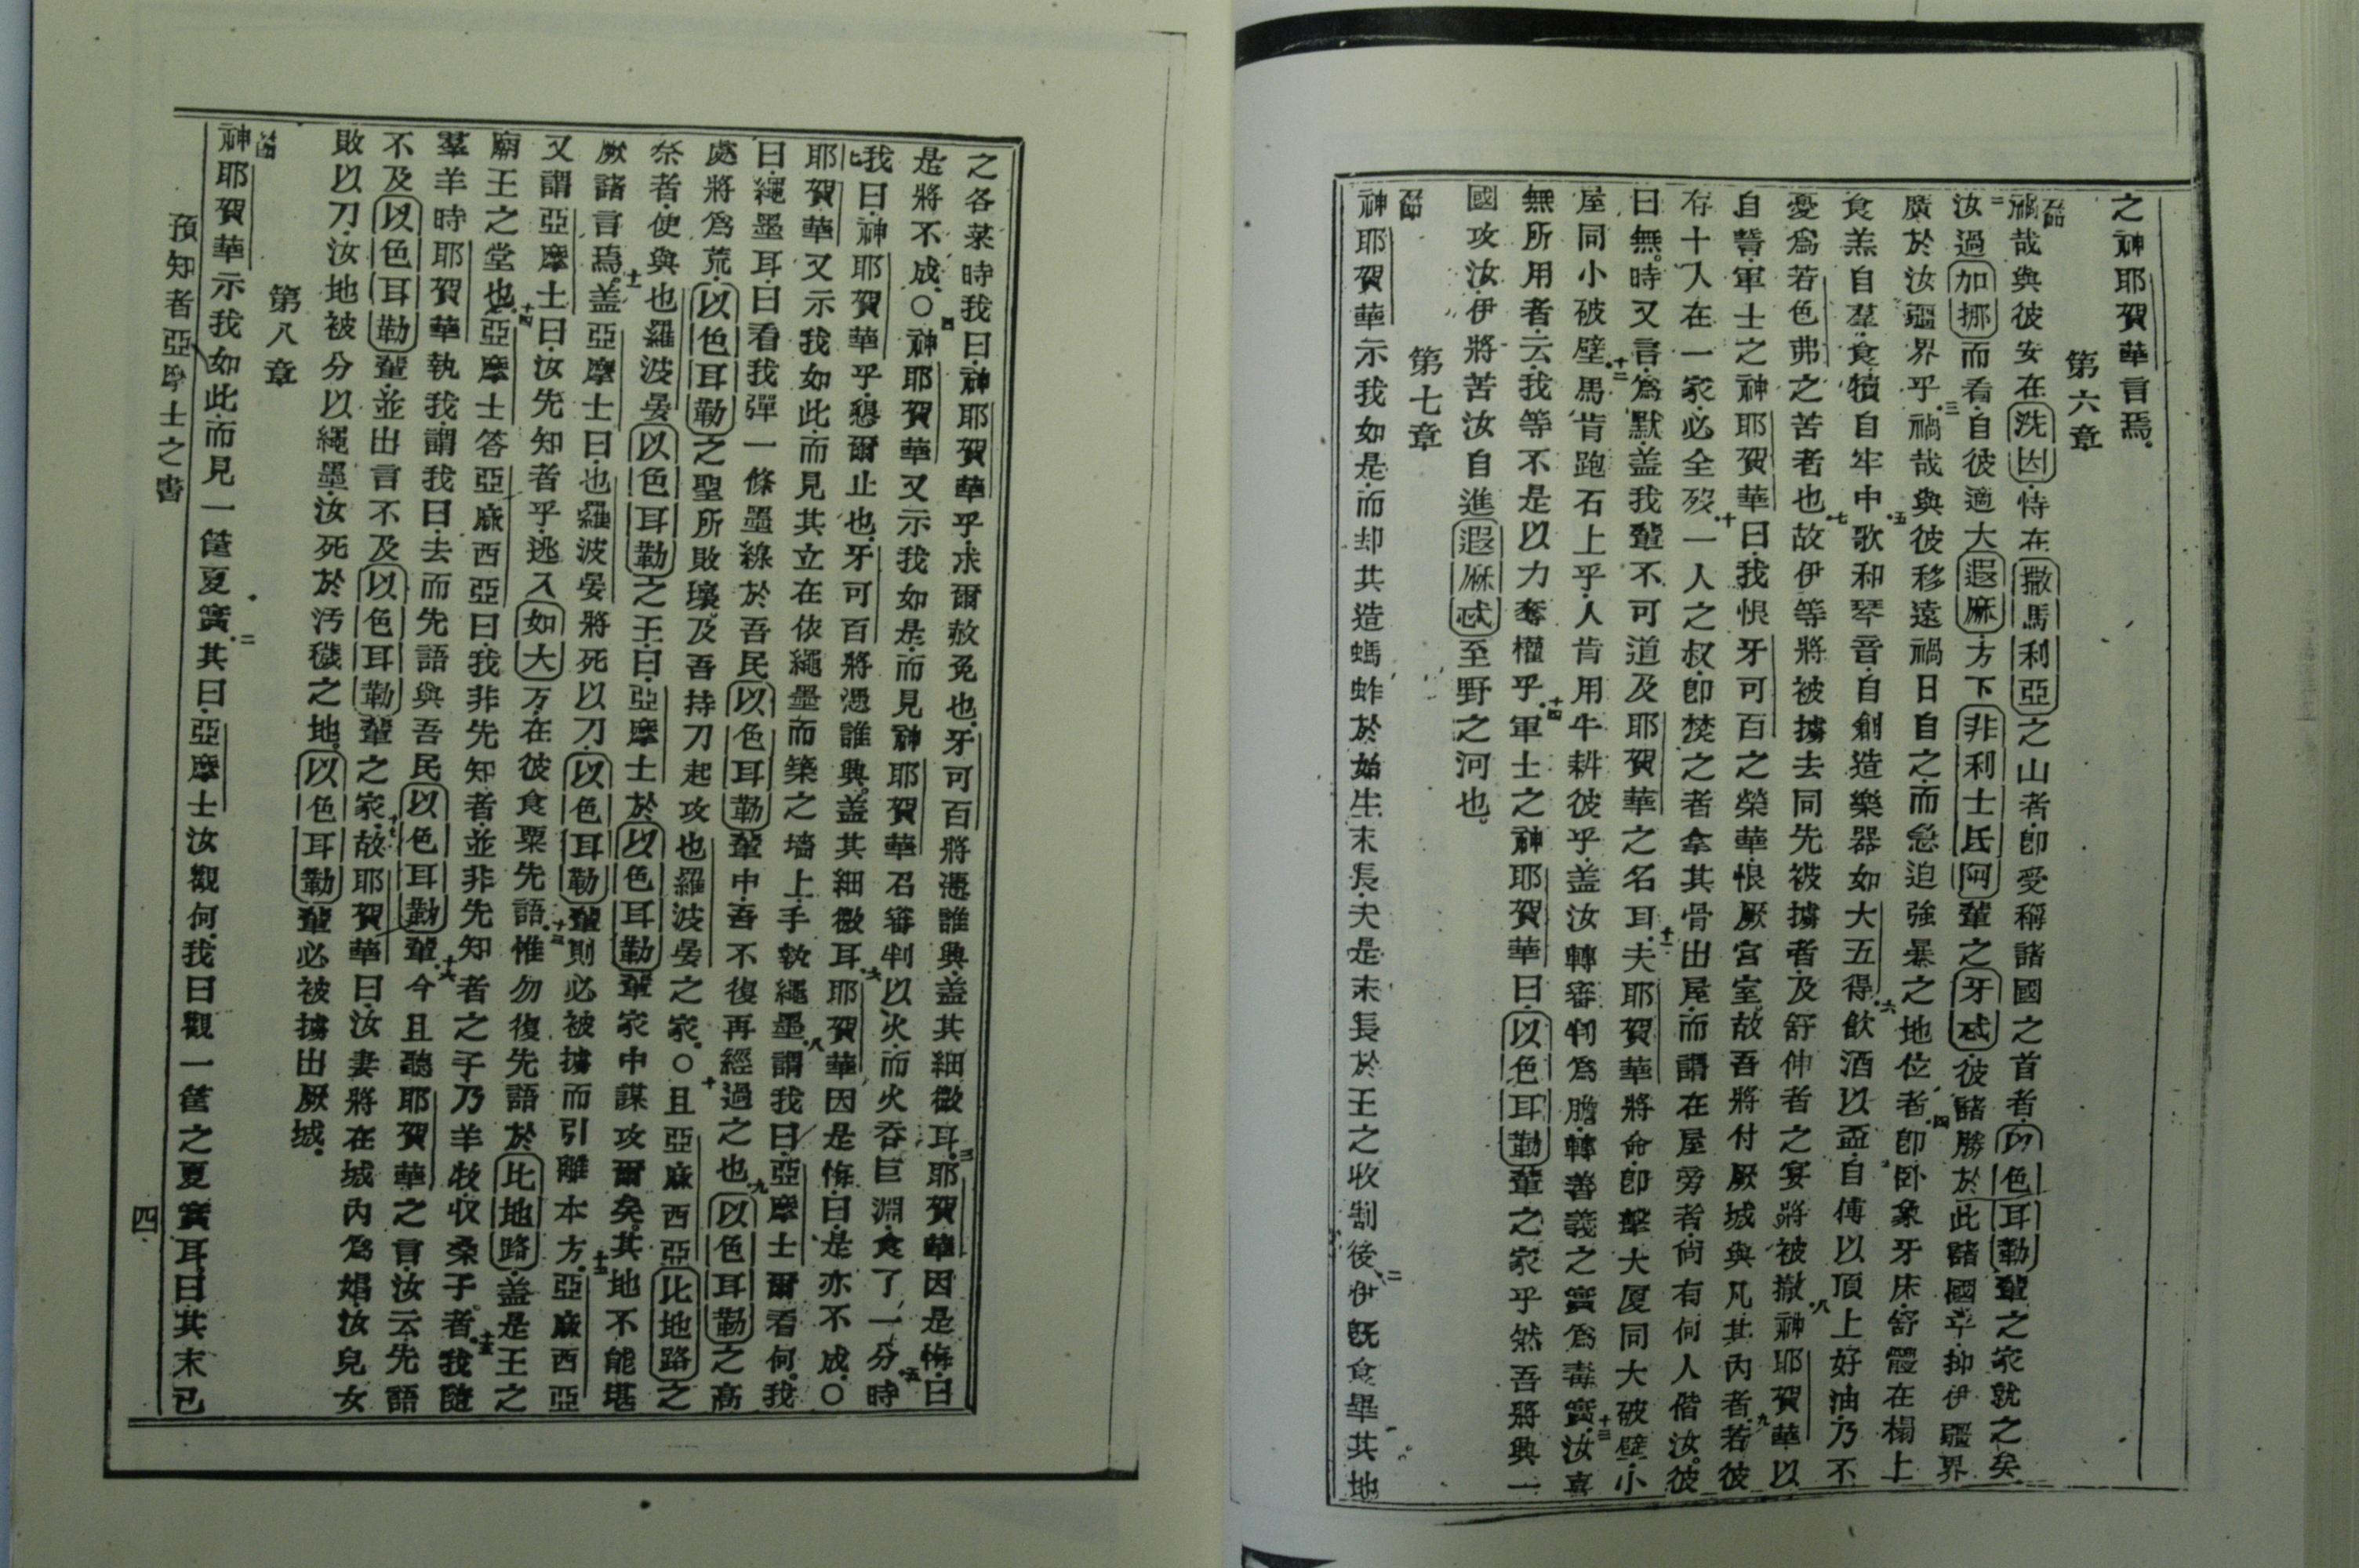 之神耶賀華言焉
第六章
一節
禍哉與彼安在洗因恃在撒馬利亞之山者卽受稱諸國之首者以色耳勒輩之家就之矣
二
汝過加挪而看自彼適大遐麻方下非利士氏阿輩之牙忒彼諸勝於此諸國乎抑伊疆界
廣於汝疆界乎三禍哉與彼移遠禍日自之而急迫強暴之地位者四卽卧象牙床舒體在榻上
食羔自羣食犢自牢中五歌和琴音自創造樂器如大五得六飲酒以盃自傅以頂上好油乃不
憂爲若色弗之苦者也七故伊等將被擄去同先被擄者及舒伸者之宴將被撤八神耶賀華以
自誓軍士之神耶賀華曰我恨牙可百之榮華恨厥宮室故吾將付厥城與凡其內者九若彼
存十人在一家必全歿十一人之叔卽焚之者拿其骨出屋而謂在屋旁者尙有何人偕汝彼
曰無時又言爲默盖我輩不可道及耶賀華之名耳十一夫耶賀華將命卽擊大厦同大破壁小
屋同小破壁十二馬肯跑石上乎人肯用牛耕彼乎盖汝轉審判爲膽轉善義之實爲毒實十三汝喜
無所用者云我等不是以力奪權乎十四軍士之神耶賀華曰以色耳勒輩之家乎然吾將興一
國攻汝伊將苦汝自進遐麻忒至野之河也
第七章
一節
神耶賀華示我如是而却其造螞蚱於始生末長夫是末長於王之收割後二伊旣食畢其地
之各菜時我曰神耶賀華乎求爾赦免也牙可百將憑誰興盖其細微耳三耶賀華因是悔曰
是將不成○四神耶賀華又示我如是而見神耶賀華召審判以火而火吞巨淵食了一分五時
我曰神耶賀華乎懇爾止也牙可百將憑誰興盖其細微耳六耶賀華因是悔曰是亦不成○
七耶賀華又示我如此而見其立在依繩墨而築之墻上手執繩墨八謂我曰亞摩士爾看何我
曰繩墨耳曰看我彈一條墨線於吾民以色耳勒輩中吾不復再經過之也九以色耳勒之高
處將爲荒以色耳勒之聖所敗壞及吾持刀起攻也羅波晏之家○十且亞麻西亞比地路之
祭者使與也羅波晏以色耳勒之王曰亞摩士於以色耳勒輩家中謀攻爾矣其地不能堪
厥諸言焉十一盖亞摩士曰也羅波晏將死以刀以色耳勒輩則必被擄而引離本方十二亞麻西亞
又謂亞摩士曰汝先知者乎逃入如大方在彼食粟先語十三惟勿復先語於比地路盖是王之
廟王之堂也十四亞摩士答亞麻西亞曰我非先知者並非先知者之子乃羊牧收桑子者十五我隨
羣羊時耶賀華執我謂我曰去而先語與吾民以色耳勒輩十六今且聽耶賀華之言汝云先語
不及以色耳勒輩並出言不及以色耳勒輩之家十七故耶賀華曰汝妻將在城內爲娼汝兒女
敗以刀汝地被分以繩墨汝死於汚穢之地以色耳勒輩必被擄出厥城
第八章
一節
神耶賀華示我如此而見一筐夏實二其曰亞摩士汝觀何我曰觀一筐之夏實耳曰其末已
預知者亞摩士之書
四